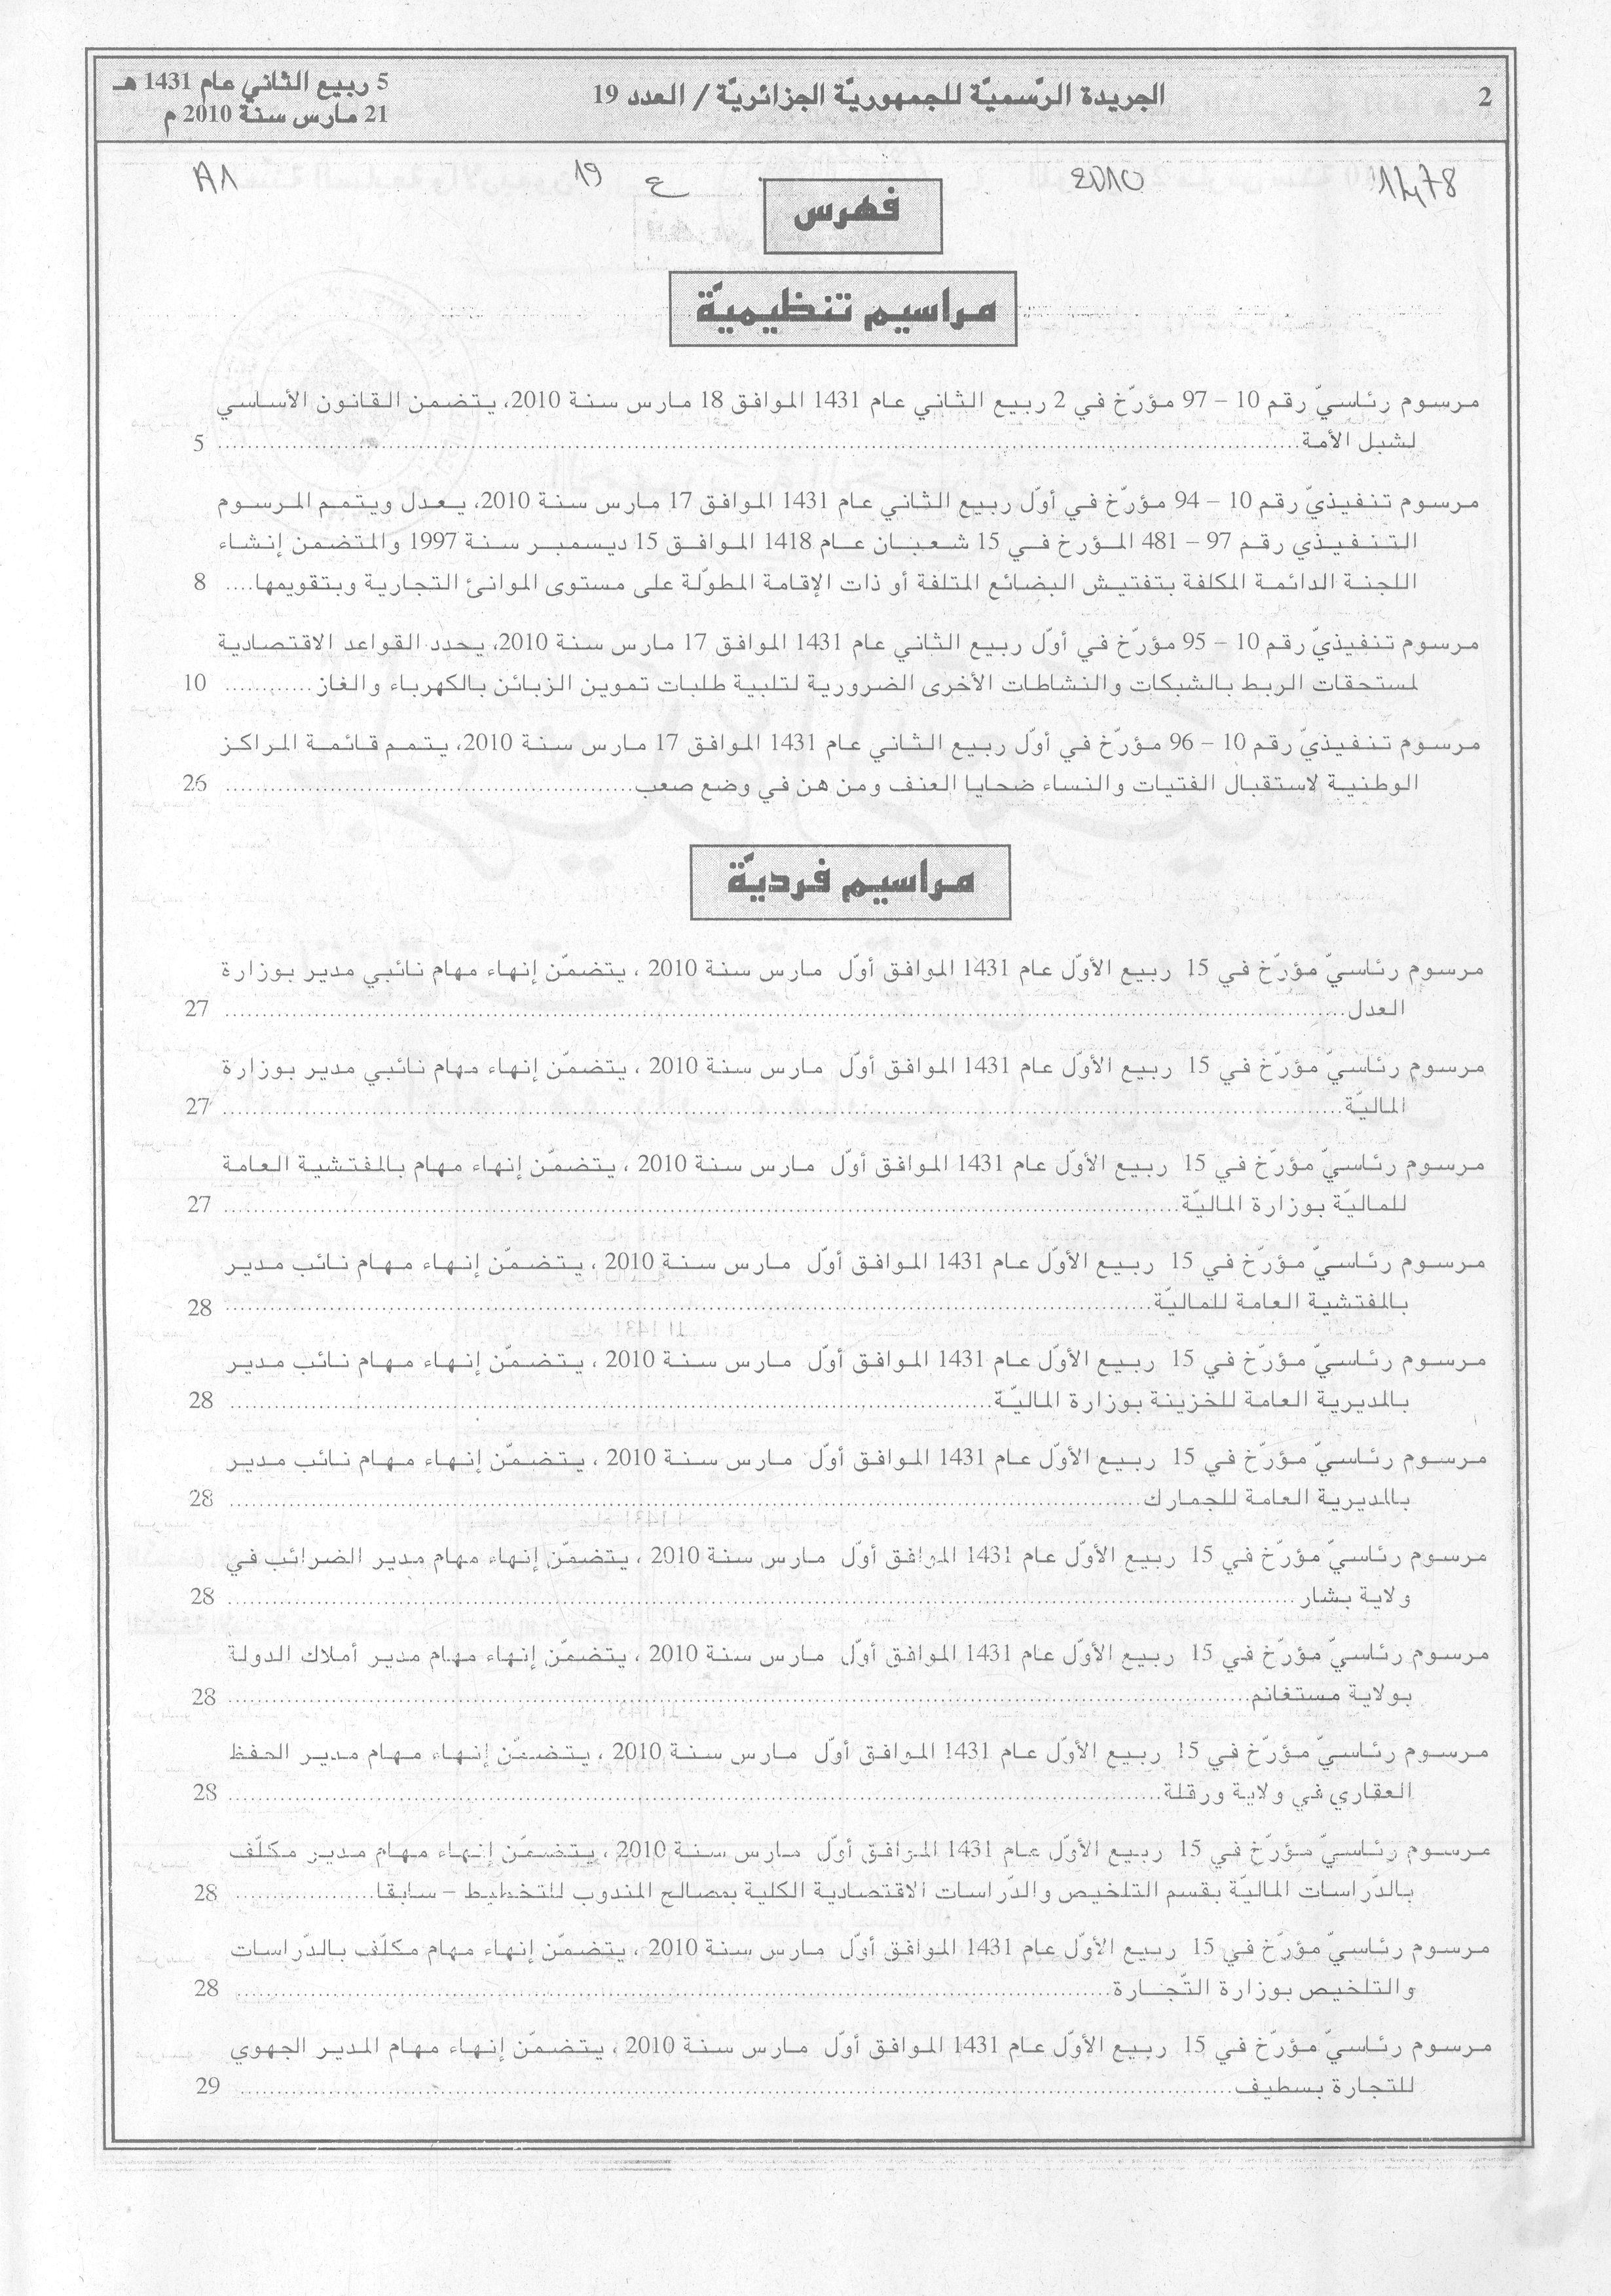 2
الجريدة الرّسميّة للجمهوريّة الجزائريّة / العدد 19
5 ربيع الثاني عام 1431 هـ
21 مارس سنة 2010 م
2010
ع 19
A1
فهرس
مراسيم تنظيميّة
مرسوم رئاسيّ رقم 10 – 97 مؤرّخ في 2 ربيع الثاني عام 1431 الموافق 18 مارس سنة 2010، يتضمن القانون الأساسي
لشبل الأمة.......... 5
مرسوم تنفيذيّ رقم 10 – 94 مؤرّخ في أوّل ربيع الثاني عام 1431 الموافق 17 مارس سنة 2010، يعدل ويتمم المرسوم
التنفيذي رقم 97 – 481 المؤرخ في 15 شعبان عام 1418 الموافق 15 ديسمبر سنة 1997 والمتضمن إنشاء
اللجنة الدائمة المكلفة بتفتيش البضائع المتلفة أو ذات الإقامة المطوّلة على مستوى الموانئ التجارية وبتقويمها.... 8
مرسوم تنفيذيّ رقم 10 – 95 مؤرّخ في أوّل ربيع الثاني عام 1431 الموافق 17 مارس سنة 2010، يحدد القواعد الاقتصادية
لمستحقات الربط بالشبكات والنشاطات الأخرى الضرورية لتلبية طلبات تموين الزبائن بالكهرباء والغاز.......... 10
مرسوم تنفيذيّ رقم 10 – 96 مؤرّخ في أوّل ربيع الثاني عام 1431 الموافق 17 مارس سنة 2010، يتمم قائمة المراكز
الوطنية لاستقبال الفتيات والنساء ضحايا العنف ومن هن في وضع صعب.......... 26
مراسيم فرديّة
مرسوم رئاسيّ مؤرّخ في 15 ربيع الأوّل عام 1431 الموافق أوّل مارس سنة 2010 ، يتضمّن إنهاء مهام نائبي مدير بوزارة
العدل.......... 27
مرسوم رئاسيّ مؤرّخ في 15 ربيع الأوّل عام 1431 الموافق أوّل مارس سنة 2010 ، يتضمّن إنهاء مهام نائبي مدير بوزارة
الماليّة.......... 27
مرسوم رئاسيّ مؤرّخ في 15 ربيع الأوّل عام 1431 الموافق أوّل مارس سنة 2010 ، يتضمّن إنهاء مهام بالمفتشية العامة
للماليّة بوزارة الماليّة.......... 27
مرسوم رئاسيّ مؤرّخ في 15 ربيع الأوّل عام 1431 الموافق أوّل مارس سنة 2010 ، يتضمّن إنهاء مهام نائب مدير
بالمفتشية العامة للماليّة.......... 28
مرسوم رئاسيّ مؤرّخ في 15 ربيع الأوّل عام 1431 الموافق أوّل مارس سنة 2010 ، يتضمّن إنهاء مهام نائب مدير
بالمديرية العامة للخزينة بوزارة الماليّة.......... 28
مرسوم رئاسيّ مؤرّخ في 15 ربيع الأوّل عام 1431 الموافق أوّل مارس سنة 2010 ، يتضمّن إنهاء مهام نائب مدير
بالمديرية العامة للجمارك.......... 28
مرسوم رئاسيّ مؤرّخ في 15 ربيع الأوّل عام 1431 الموافق أوّل مارس سنة 2010 ، يتضمّن إنهاء مهام مدير الضرائب في
ولاية بشار.......... 28
مرسوم رئاسيّ مؤرّخ في 15 ربيع الأوّل عام 1431 الموافق أوّل مارس سنة 2010 ، يتضمّن إنهاء مهام مدير أملاك الدولة
بولاية مستغانم.......... 28
مرسوم رئاسيّ مؤرّخ في 15 ربيع الأوّل عام 1431 الموافق أوّل مارس سنة 2010 ، يتضمّن إنهاء مهام مدير الحفظ
العقاري في ولاية ورقلة.......... 28
مرسوم رئاسيّ مؤرّخ في 15 ربيع الأوّل عام 1431 الموافق أوّل مارس سنة 2010 ، يتضمّن إنهاء مهام مدير مكلّف
بالدّراسات الماليّة بقسم التلخيص والدّراسات الاقتصادية الكلية بمصالح المندوب للتخطيط – سابقا.......... 28
مرسوم رئاسيّ مؤرّخ في 15 ربيع الأوّل عام 1431 الموافق أوّل مارس سنة 2010 ، يتضمّن إنهاء مهام مكلّف بالدّراسات
والتلخيص بوزارة التّجارة.......... 28
مرسوم رئاسيّ مؤرّخ في 15 ربيع الأوّل عام 1431 الموافق أوّل مارس سنة 2010 ، يتضمّن إنهاء مهام المدير الجهوي
للتجارة بسطيف.......... 29